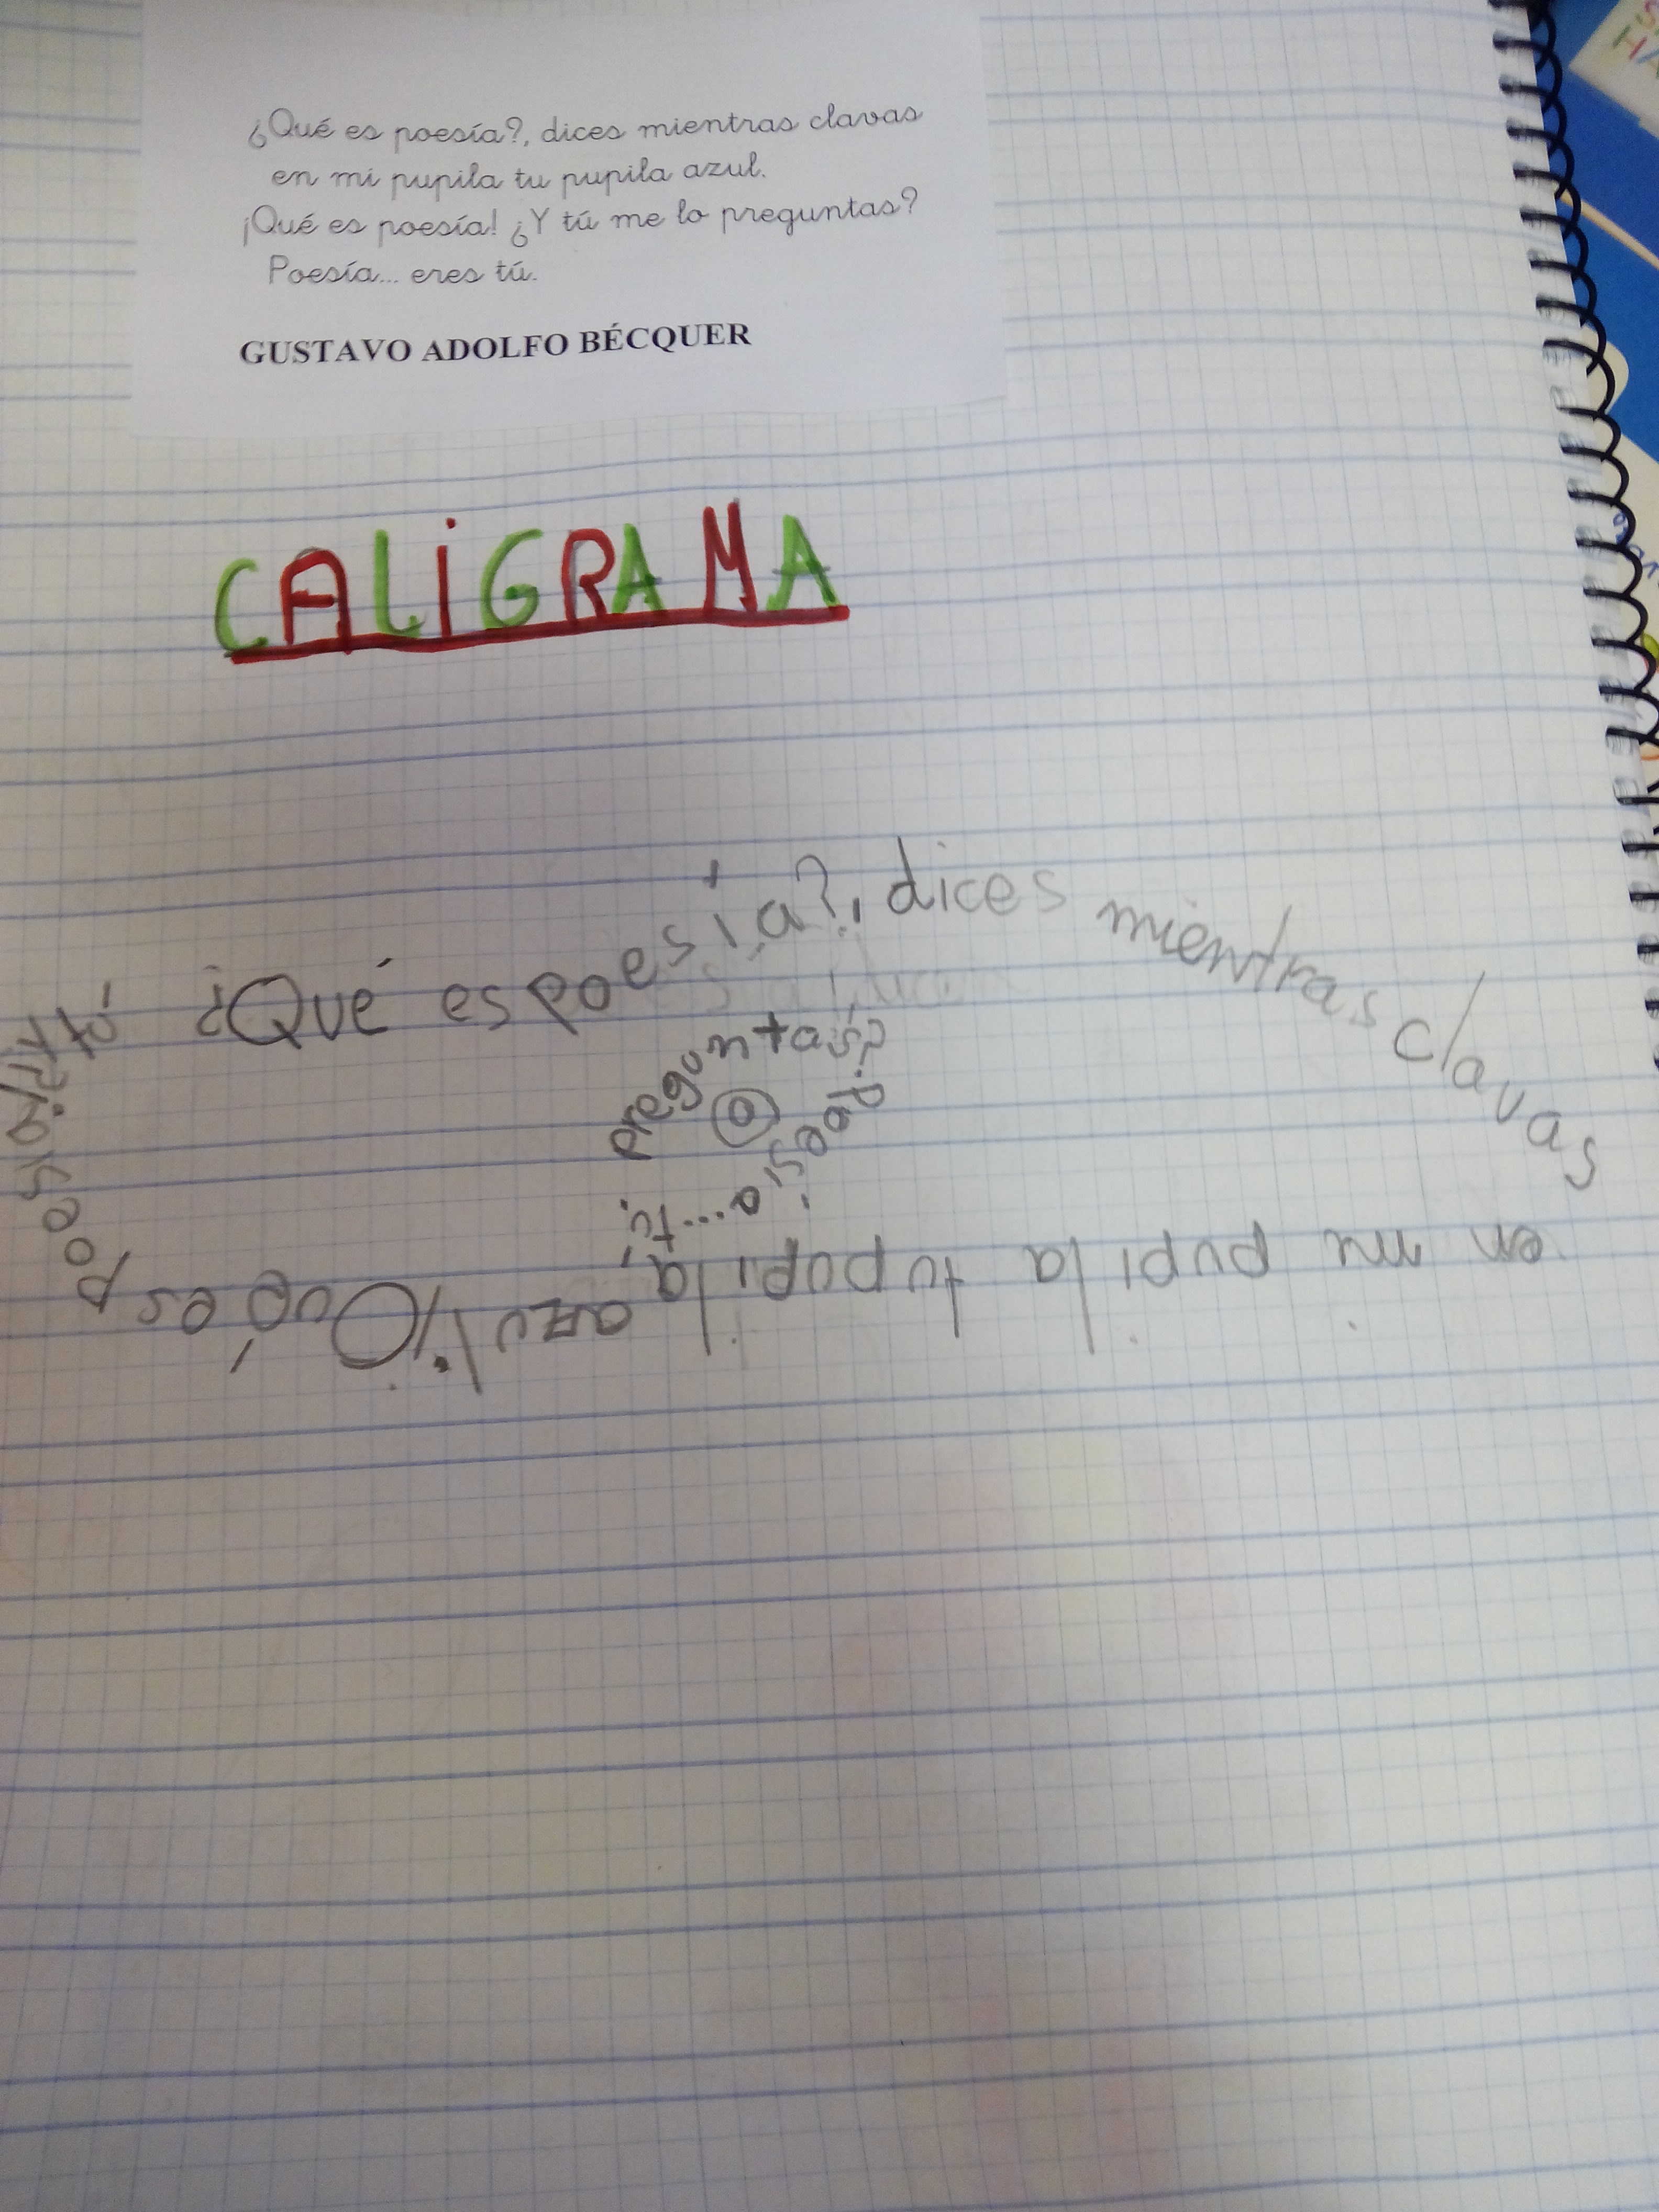 ¿Qué es poesía?, dices mientras clavas
en mi pupila tu pupila azul.
¡Qué es poesía! ¿Y tú me lo preguntas?
Poesía... eres tú.
GUSTAVO ADOLFO BÉCQUER
CALiGRAMA
¿Qué es poesía?, dices mientras clavas
en mi pupila tu pupila azul. ¡Qué es poesía! ¿Y tú
preguntas? Poesía... tú.